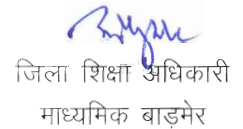 जिला शिक्षा अधिकारी
माध्यमिक बाड़मेर